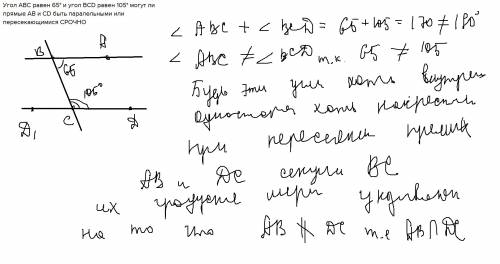 Угол ABC равен 65° и угол BCD равен 105° могут ли
прямые AB и CD быть паралельными или
пересекающимися СРОЧНО
B A
65
105°
D₁ C D
∠ ABC + ∠ BCD = 65 + 105 = 170 ≠ 180°
∠ ABC ≠ ∠ BCD т.к. 65 ≠ 105
Будь эти углы хоть внутрен
односторон хоть накрестл
при пересечени прямых
AB и DC секущ BC
их градусные меры указывают
на то что AB ∦ DC т.е AB ∩ DC